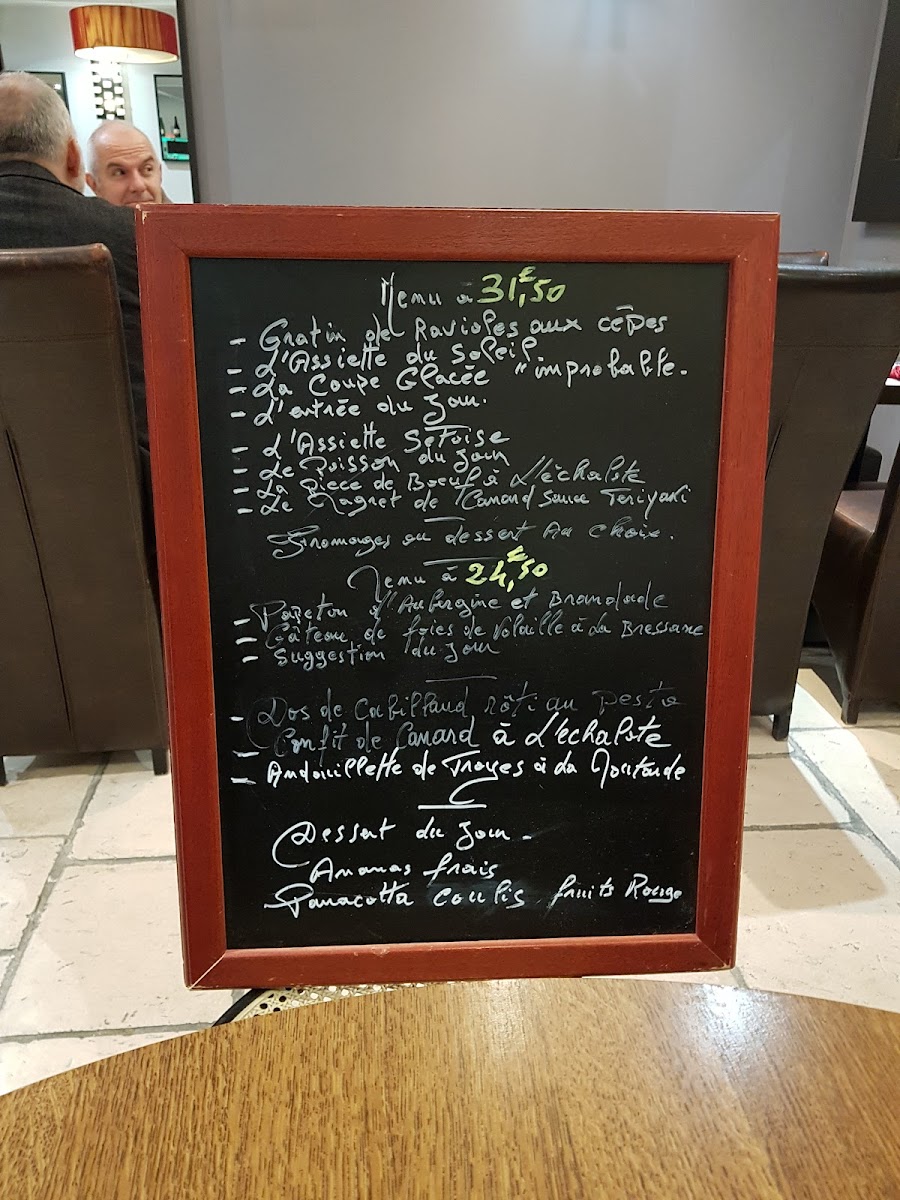 Menu à 31,€50
- Gratin de Ravioles aux cèpes
- L'Assiette du Soleil.
- La Coupe Glacée "improbable.
- L'entrée du Jour.
- L'Assiette Setoise
- Le Poisson du Jour
- La Pièce de Boeuf à L'échalote
- Le Magret de Canard Sauce Teriyaki
Fromages ou dessert Au choix.
Menu à 24,€50
- Papeton d'Aubergine et Brandade
- Gâteau de foies de Volaille à la Bressane
- Suggestion du Jour
- Dos de Cabillaud rôti au pesto
- Confit de Canard à L'échalote
- Andouillette de Troyes à la Moutarde
Dessert du Jour -
Ananas frais
Panacotta Coulis fruits Rouge